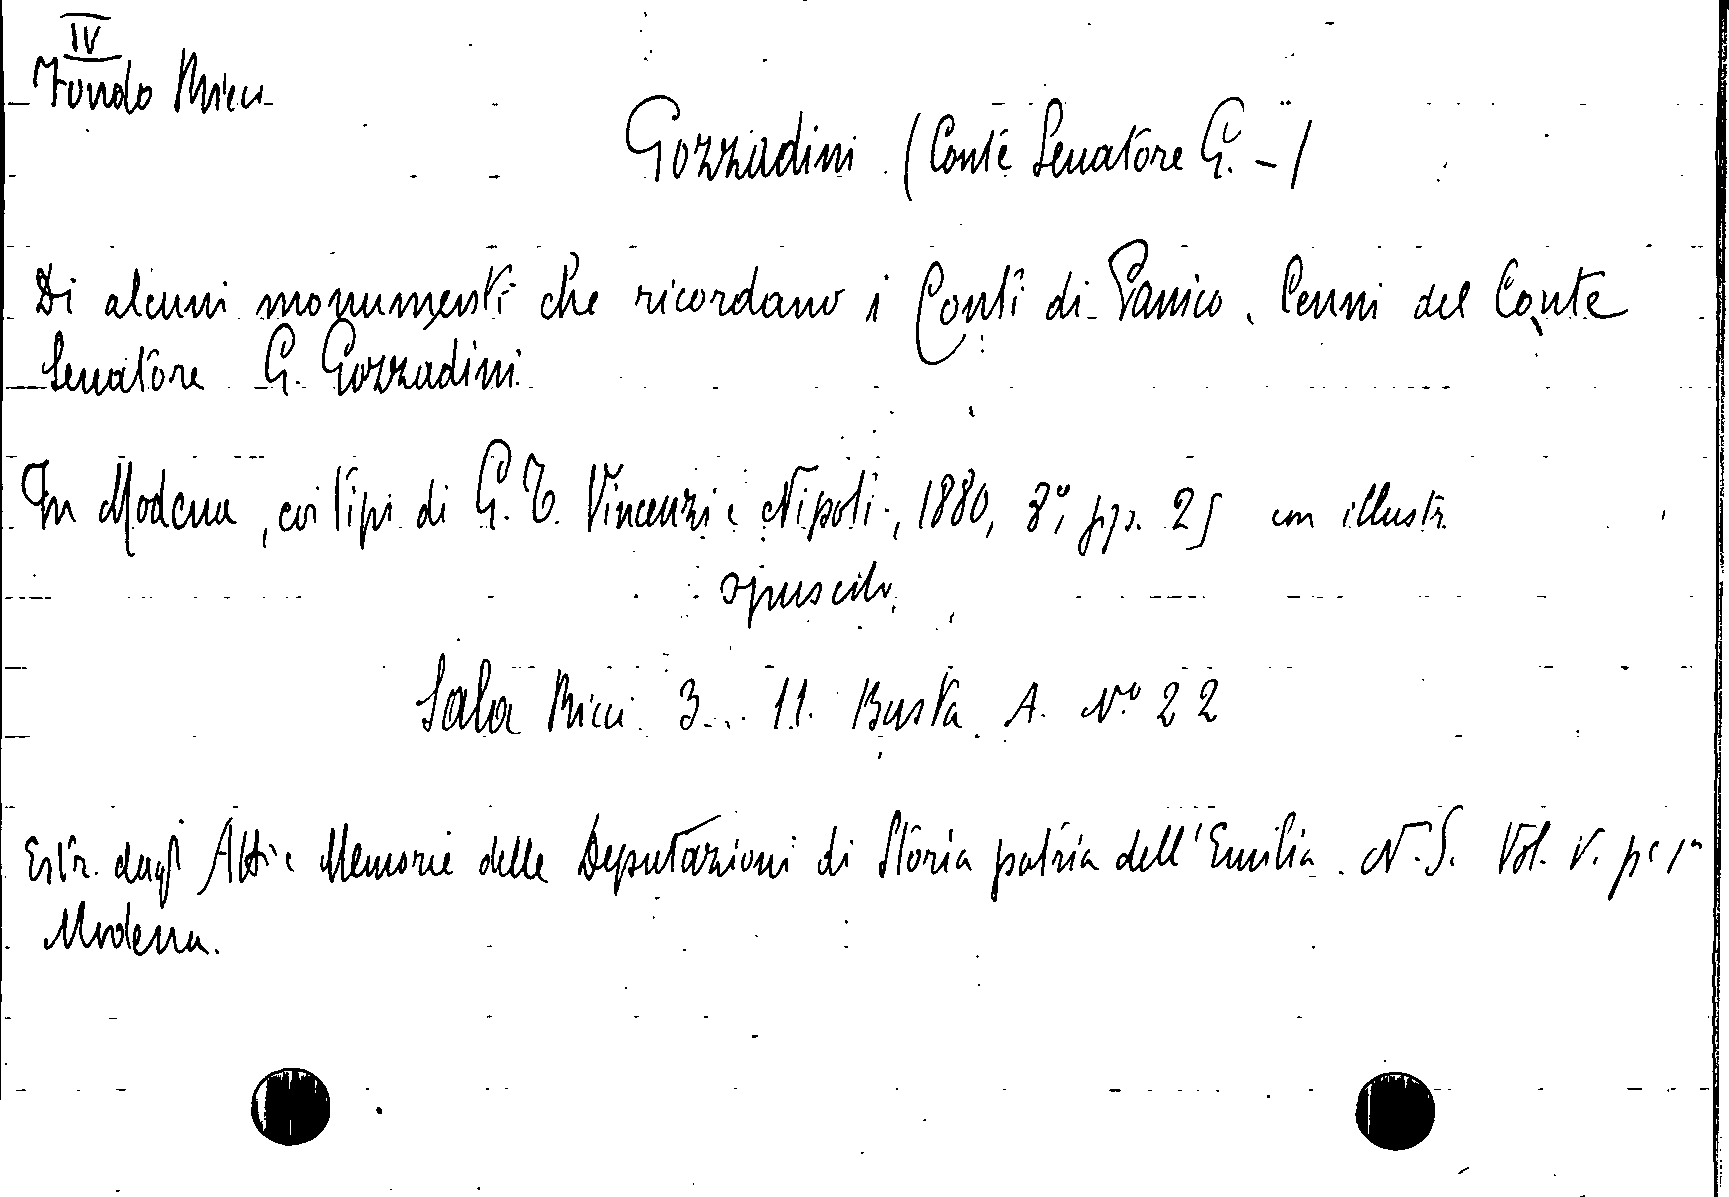 IV
Fondo Ricci
Gozzadini (Conte Senatore G. -)
Di alcuni monumenti che ricordano i Conti di Panico. Cenni del Conte
Senatore G. Gozzadini
In Modena, coi tipi di G. T. Vincenzi e Nipoti, 1880, 8°, pp. 25 con illustr.
opuscolo
Sala Ricci 3... 11. Busta A. N.° 22
Estr. dagli Atti e Memorie delle Deputazioni di Storia patria dell'Emilia. N. S. Vol. V. pe 1a
Modena.